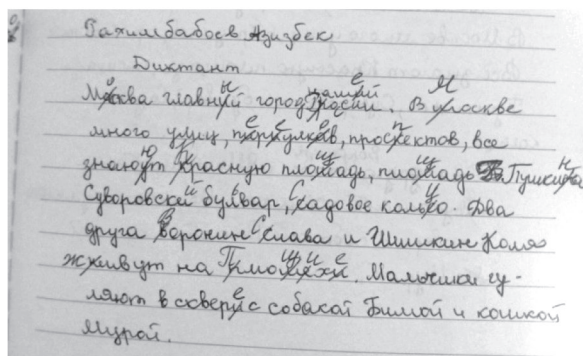 Рахимбабоев Азизбек
Диктант
Москва главный город нашей. В Москве
много улиц, переулков, проспектов, все
знают Красную площадь, площадь Пушкина
Суворовский бульвар, Садовое кольцо. Два
друга Воронин Слава и Шишкин Коля
живут на. Малыши гу-
ляют в сквере с собакой Бимой и кошкой
Мурой.